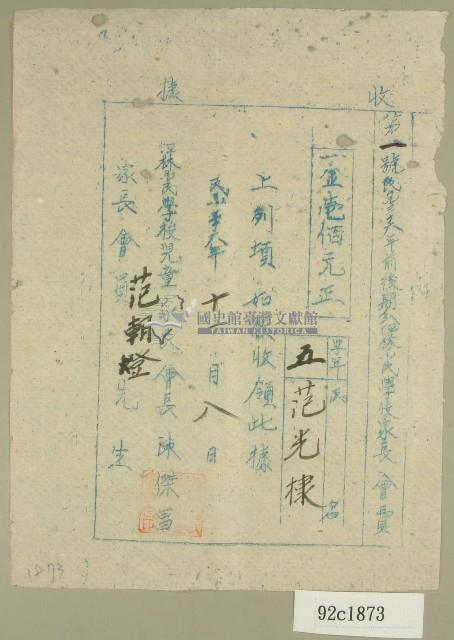 收據
第一號民國卅六年前後期分
國民學校家長會費
一金壹佰元正
學年 氏名
五 范光棣
上列項如數收領此據
民國卅六年十二月八日
國民學校兒童家長會長陳傑昌
家長會員范朝燈先生
國史館臺灣文獻館
TAIWAN HISTORICA
1873
92c1873